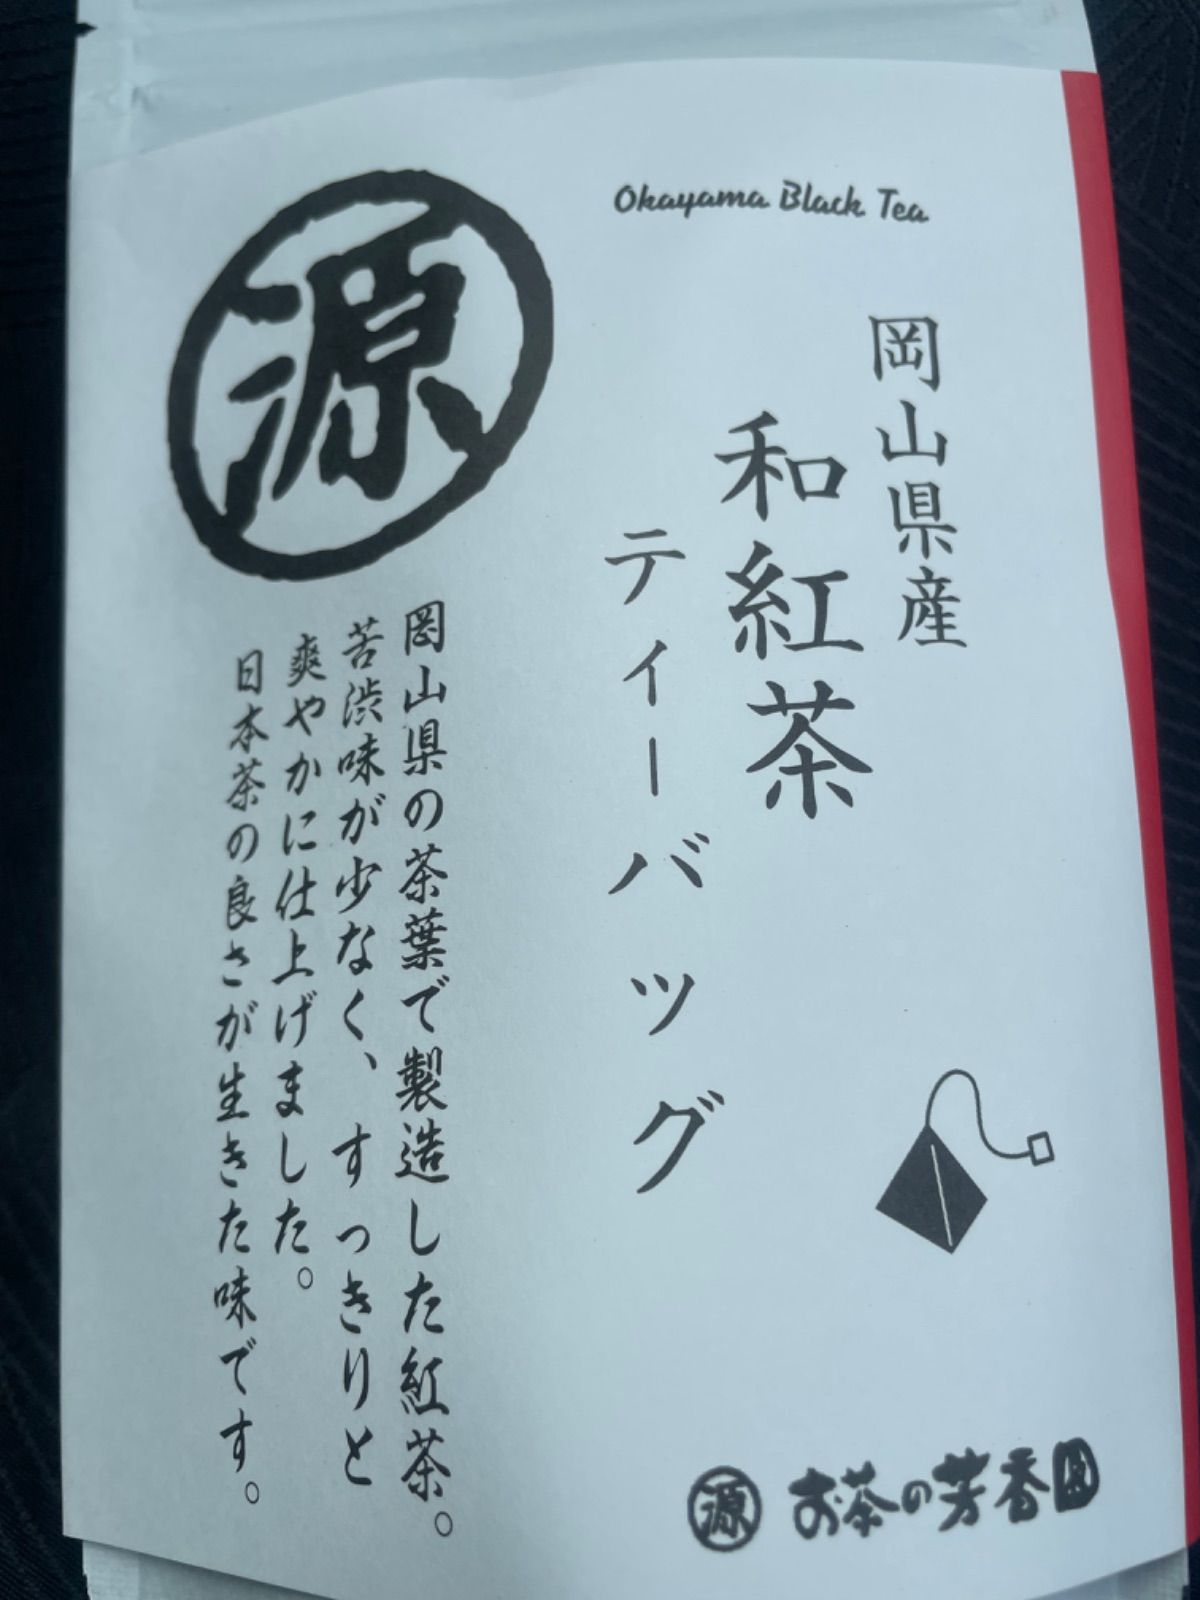 Okayama Black Tea
岡山県産
和紅茶
ティーバッグ
源
岡山県の茶葉で製造した紅茶。
苦渋味が少なく、すっきりと
爽やかに仕上げました。
日本茶の良さが生きた味です。
源 お茶の芳香園